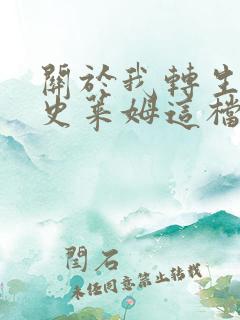 關於我轉生
史萊姆這檔
閆石
未經同意禁止轉載